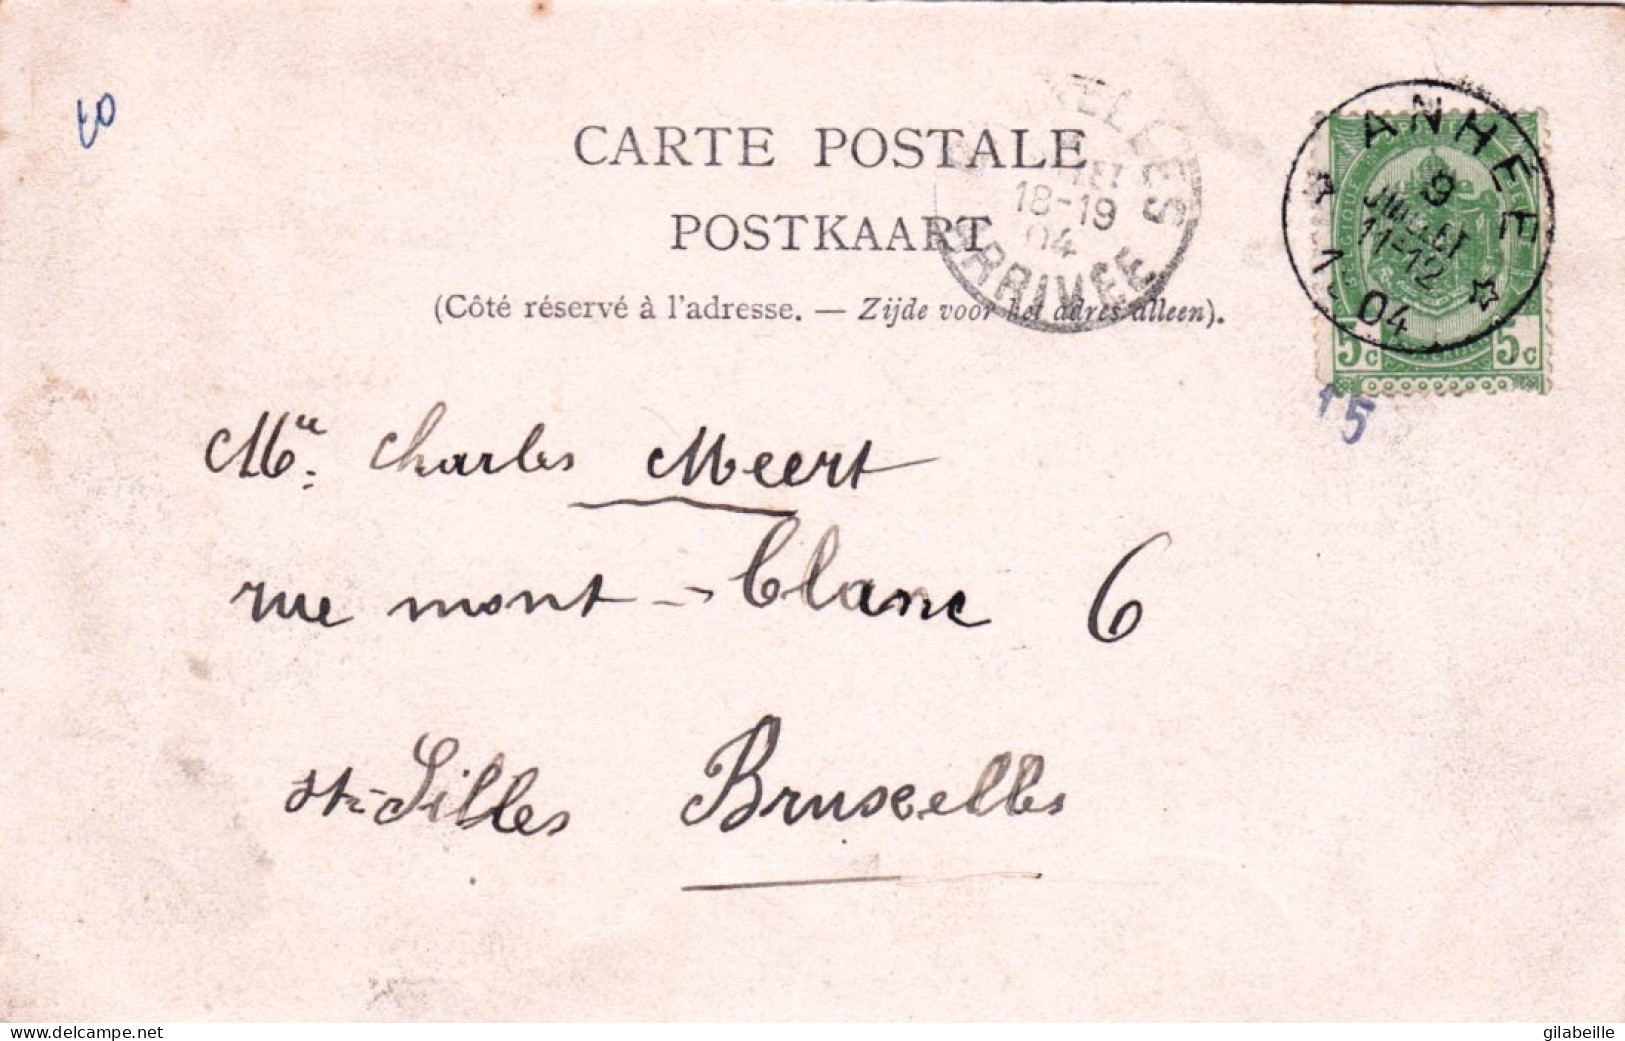 10
CARTE POSTALE
POSTKAART
(Côté réservé à l'adresse. — Zijde voor het adres alleen).
18-19
04
ARRIVÉE
ANHÉE
9
JUILLET
11-12
04
5c 5c
15
Mr. Charles Meert
rue mont-blanc 6
St-Gilles Bruxelles
delcampe.net
gilabeille